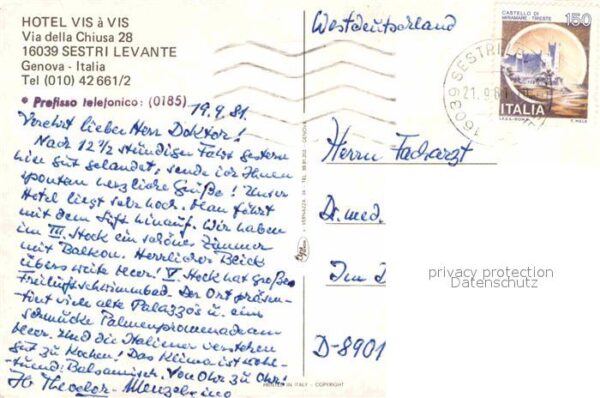 HOTEL VIS à VIS
Via della Chiusa 28
16039 SESTRI LEVANTE
Genova - Italia
Tel (010) 42 661/2
* Prefisso telefonico: (0185)
19.9.81.
Verehrt lieber Herr Doktor!
Nach 12 1/2 stündiger Fahrt gestern
hier gut gelandet, sende ich Ihnen
spontan herzliche Grüße! Unser
Hotel liegt sehr hoch. Man fährt
mit dem Lift hinauf. Wir haben
im III. Stock ein schönes Zimmer
mit Balkon. Herrlicher Blick
übers weite Meer! V. Stock hat großes
Freiluftschwimmbad. Der Ort präsen-
tiert viele alte Palazzos u. eine
schmucke Palmenpromenade am
Meer. Und die Italiener verstehen
gut zu Kochen! Das Klima ist wohl-
tuend: Balsamisch. Von Ohr zu Ohr!
Ihr Theodor
PRINTED IN ITALY - COPYRIGHT
Westdeutschland
Herrn Facharzt
Dr. med.
Im
D-8901
CASTELLO DI
MIRAMARE - TRIESTE
150
ITALIA
16039 SESTRI
21.9.81
privacy protection
Datenschutz